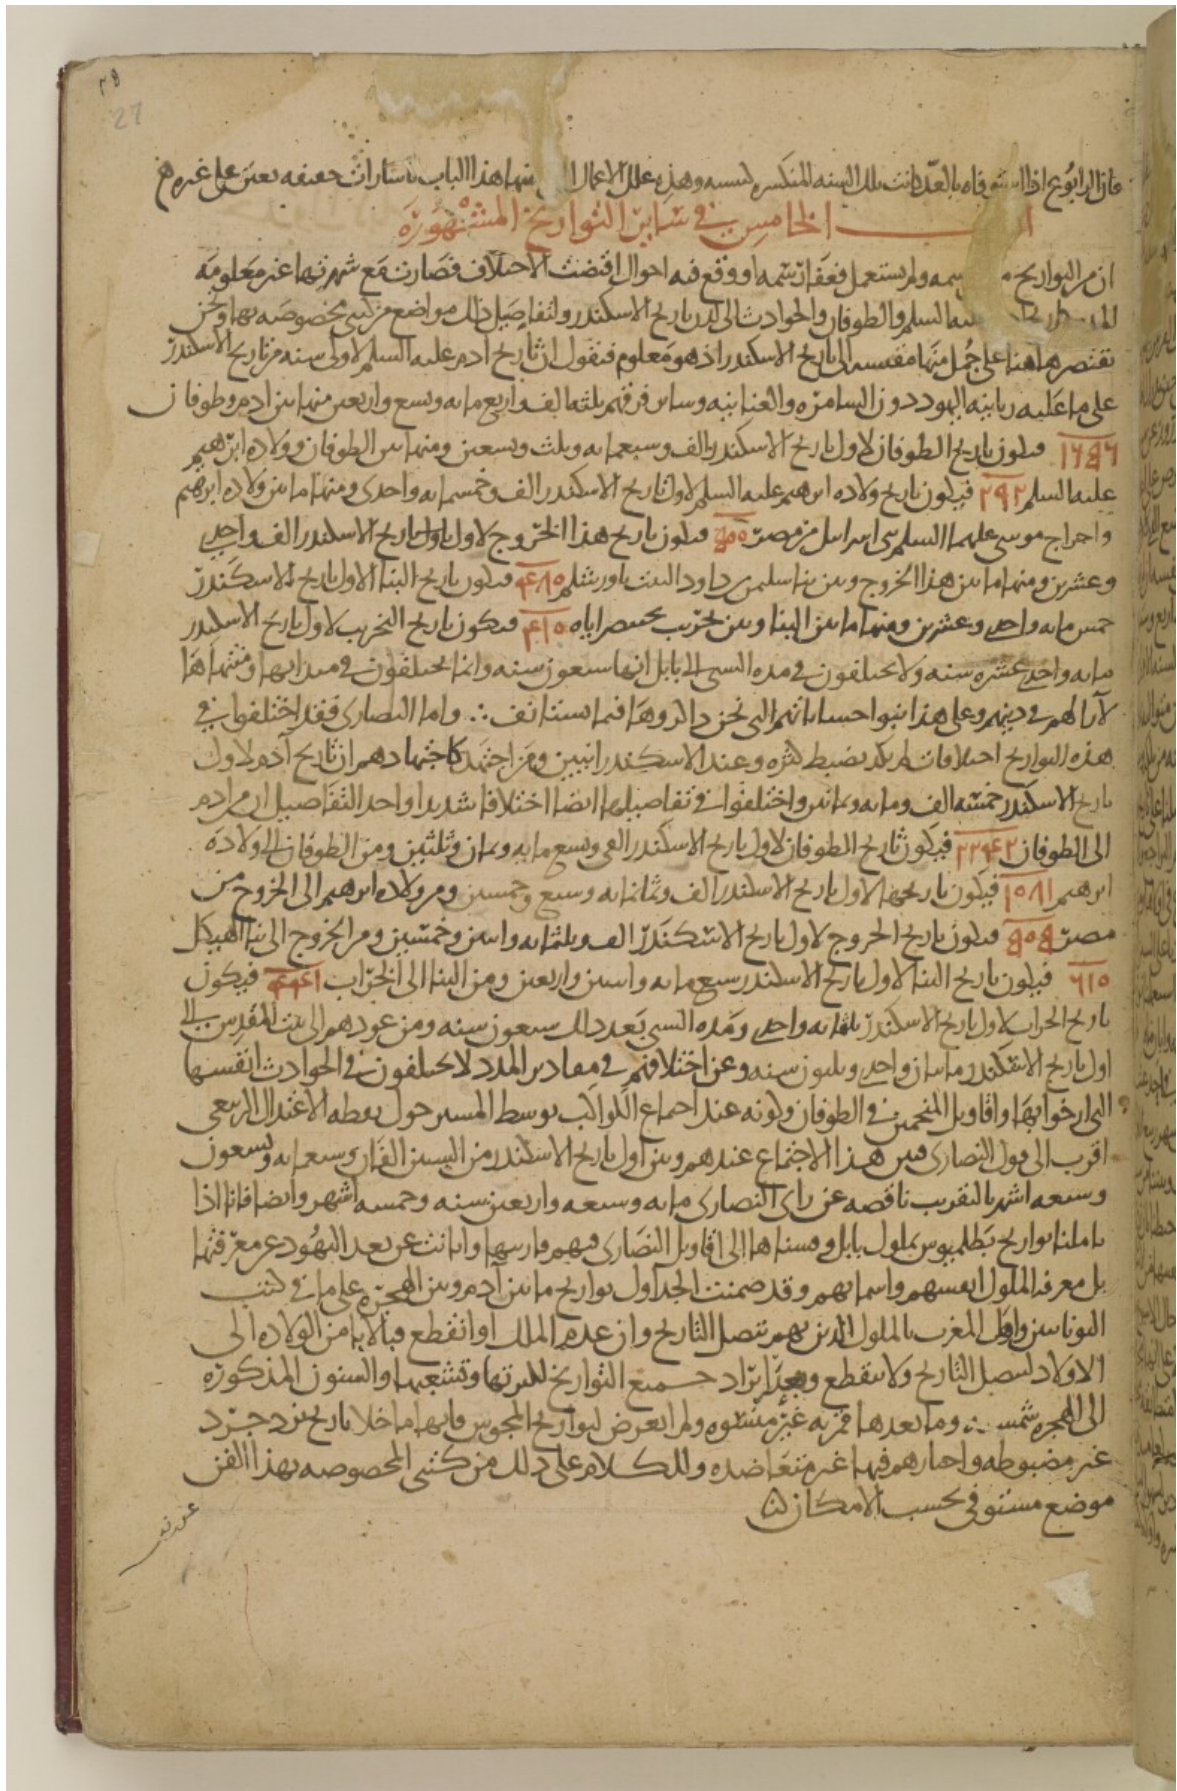 ٢٨
27
فان الرابوع اذا استوفاه بالعدّ كانت تلك السنه المنكسره لنسبه وهذه علل الاعمال منها هذا الباب باشارات خفيفه تعين على غيره
الخامس في سائر التواريخ المشهورة
ان من التواريخ سمه ولم يستعمل فعفا رسمه او وقع فيه احوال اقتضت الاختلاف فصارت مع شهرتها غير معلومه
عليه السلم والطوفان والحوادث الى لدن تاريخ الاسكندر ولتفاصيل ذلك مواضع من كتبي مخصوصه بها ونحن
نقتصر هاهنا على جمل منها مقيسه الى تاريخ الاسكندر اذ هو معلوم فنقول ان تاريخ ادم عليه السلم لاول سنه من تاريخ الاسكندر
على ما عليه ربانيه اليهود دون السامره والعنانيه وسائر فرقهم ثلثه الف واربع مايه وتسع واربعين منها بين ادم وطوفان
١٦٥٦ فيكون تاريخ الطوفان لاول تاريخ الاسكندر الف وسبعمايه وثلث وتسعين ومنها بين الطوفان وولاده ابرهيم
عليه السلم ٢٩٢ فيكون تاريخ ولاده ابرهيم عليه السلم لاول تاريخ الاسكندر الف وخمسمايه واحدى ومنها ما بين ولاده ابرهيم
واخراج موسى عليهما السلم بنى اسرايل من مصر ٥٠٠ فيكون تاريخ هذا الخروج لاول تاريخ الاسكندر الف واحدى
وعشرين ومنها ما بين هذا الخروج وبين بنا سليمن بن داود البيت باوريشلم ٤٨٠ فيكون تاريخ البنا لاول تاريخ الاسكندر
خمس مايه واحدى وعشرين ومنها ما بين البنا وبين تخريب بختنصر اياه ٤١٠ فيكون تاريخ التخريب لاول تاريخ الاسكندر
مايه واحدى عشره سنه ولا يختلفون في مده السبى الى بابل انها سبعون سنه وانما يختلفون في مبدايها ومنتهاها
لآرا لهم في دينهم وعلى هذا بنوا حساباتهم التى نحن ذاكروها فيما يستانف ∴ واما النصارى فقد اختلفوا في
هذه التواريخ اختلافات لم يكد يضبط لكثره وعند الاسكندرانيين ومن اجتهد كاجتهادهم ان تاريخ آدم لاول
تاريخ الاسكندر خمسه الف ومايه وثمانين واختلفوا في تفاصيلها ايضا اختلافا شديدا واحد التفاصيل ان من ادم
الى الطوفان ٢٢٤٢ فيكون تاريخ الطوفان لاول تاريخ الاسكندر الفى وتسع مايه وثمان وثلثين ومن الطوفان الى ولاده
ابرهيم ١٠٨١ فيكون تاريخها لاول تاريخ الاسكندر الف وثمانمايه وسبع وخمسين ومن ولاده ابرهيم الى الخروج من
مصر ٥٠٥ فيكون تاريخ الخروج لاول تاريخ الاسكندر الف وثلثمايه واثنين وخمسين ومن الخروج الى بنا الهيكل
٦١٠ فيكون تاريخ البنا لاول تاريخ الاسكندر سبع مايه واثنين واربعين ومن البنا الى الخراب ٤٤١ فيكون
تاريخ الخراب لاول تاريخ الاسكندر ثلثمايه واحدى ومده السبى بعد ذلك سبعون سنه ومن عودهم الى بيت المقدس الى
اول تاريخ الاسكندر مايتان واحدى وثلثون سنه وعن اختلافهم في مقادير المدد لا يختلفون في الحوادث انفسها
التى ارخوا بها واقاويل المنجمين في الطوفان وكونه عند اجتماع الكواكب بوسط المسير حول نقطه الاعتدال الربيعى
اقرب الى قول النصارى فبين هذا الاجتماع عندهم وبين اول تاريخ الاسكندر من السنين الفان وسبعمايه وتسعون
وسبعه اشهر بالتقريب ناقصه عن راى النصارى مايه وسبعه واربعين سنه وخمسه اشهر وايضا فانا اذا
تاملنا تواريخ بطلميوس بملوك بابل وقسناها الى اقاويل النصارى فيهم قاربتها وابانت عن بعد اليهود عن معرفتها
بل معرفه الملوك انفسهم واسمايهم وقد ضمنت الجداول تواريخ ما بين آدم وبين الهجرة على ما في كتب
اليونانيين واهل المغرب بالملوك الذين بهم يتصل التاريخ وان عدم الملك او انقطع فبالابا من الولاده الى
الاولاد ليتصل التاريخ ولا ينقطع ايراد جميع التواريخ لكثرتها وتشعبها والسنون المذكوره
الى الهجره شمسيه وما بعدها قمريه غير مشوه ولم اتعرض لتواريخ المجوس فانها ما خلا تاريخ يزدجرد
غير مضبوطه واخبارهم فيها غير متعاضده وللكلام على ذلك من كتبى المخصوصه بهذا الفن
موضع مستوفى بحسب الامكان